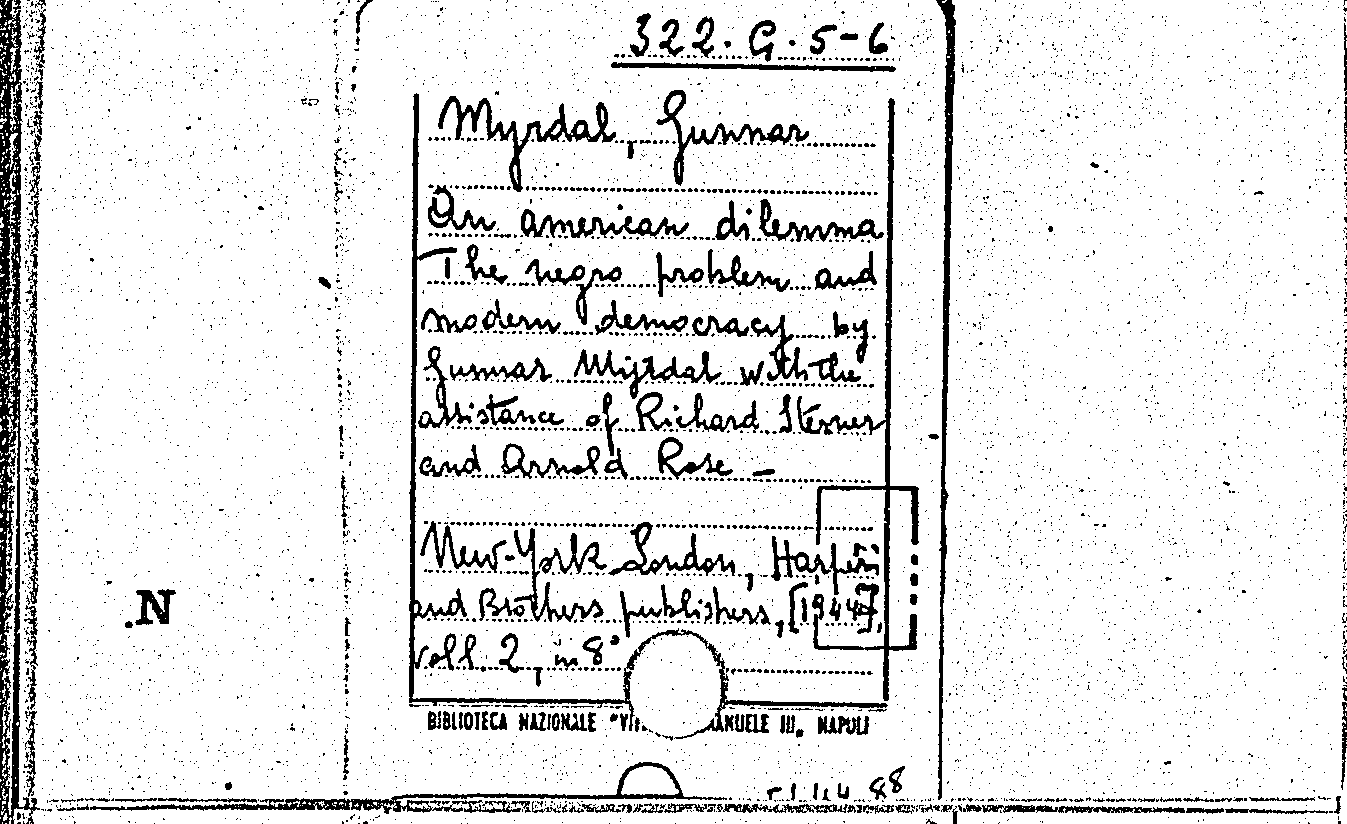 322. G. 5-6
Myrdal, Gunnar
An american dilemma
The negro problem and
modern democracy by
Gunnar Myrdal with the
assistance of Richard Sterner
and Arnold Rose –
New-York London, Harpers
and Brothers publishers, [1944],
voll. 2, in 8°
.N
BIBLIOTECA NAZIONALE "VI ANUELE III. NAPOLI
88